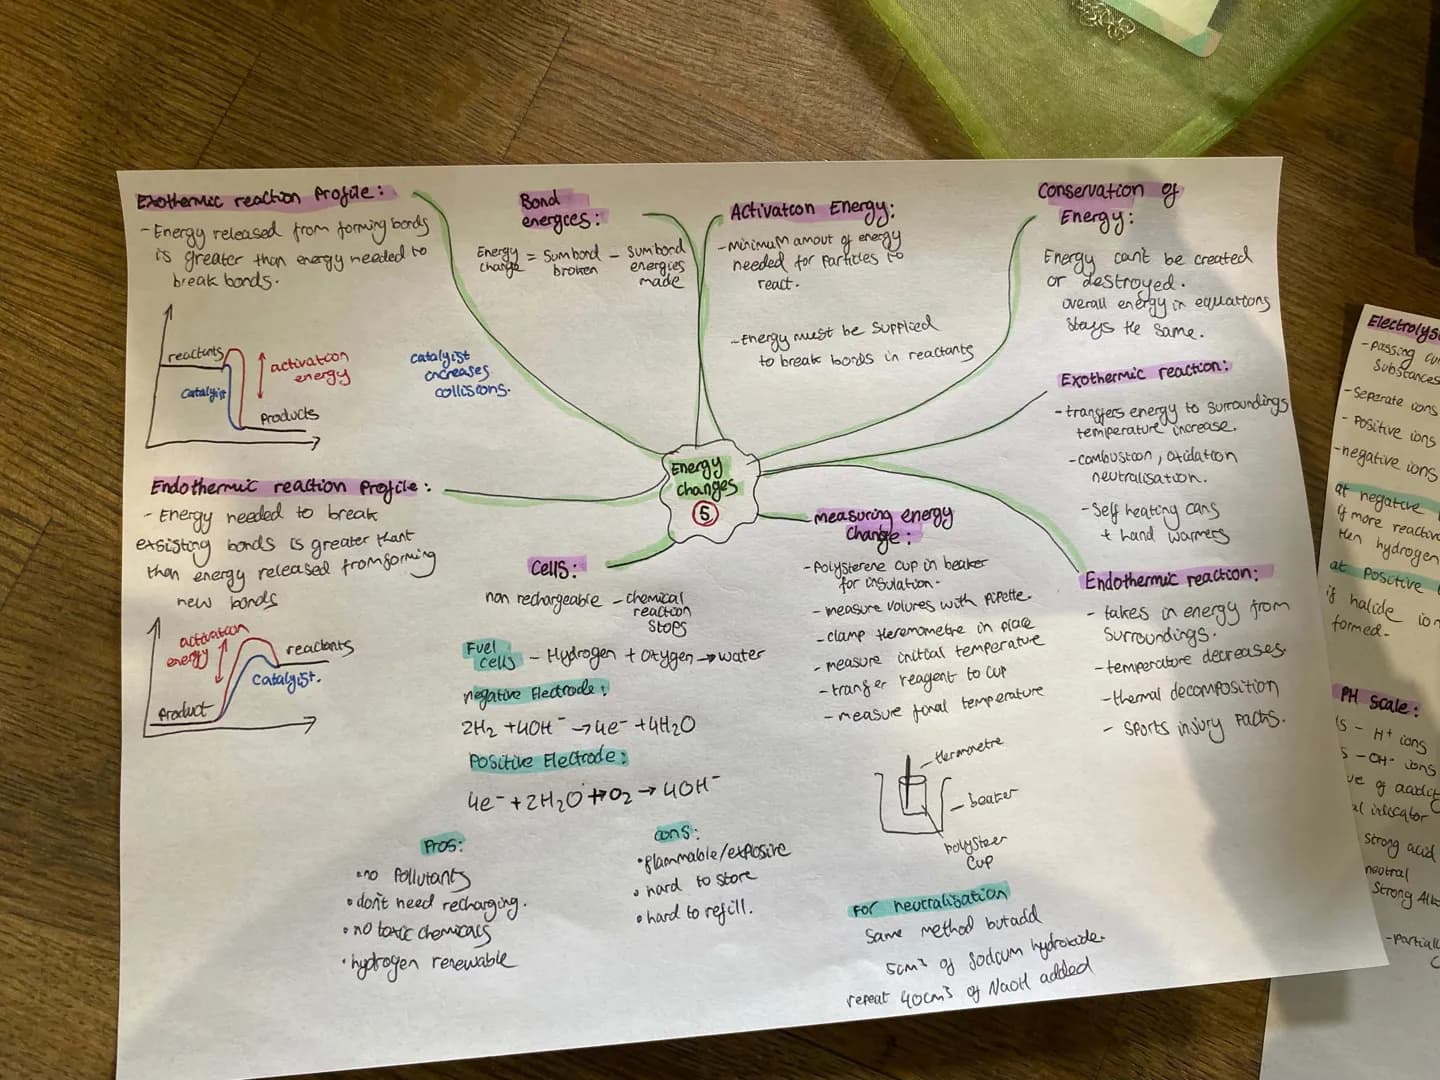 Exothermic reaction Profile:
- Energy released from forming bonds
is greater than energy needed to
break bonds.
reactants
catalyst
activation
energy
Products
catalyist
increases
collisions.
Bond
energies:
Energy
change = sum bond
broken - sum bond
energies
made
Activation Energy:
- minimum amout of energy
needed for particles to
react.
- Energy must be supplied
to break bonds in reactants
Conservation of
Energy:
Energy can't be created
or destroyed.
overall energy in equations
stays the same.
Exothermic reaction:
- transfers energy to surroundings
temperature increase.
- combustion, oxidation
neutralisation.
- Self heating cans
+ hand warmers
Energy
changes
5
Endothermic reaction Profile:
- Energy needed to break
exsisting bonds is greater thant
than energy released from forming
new bonds
activation
energy
reactants
catalyst.
Product
Cells:
non rechargeable - chemical
reaction
stops
Fuel
cells - Hydrogen + Oxygen → water
negative Electrode:
2H₂ + 4OH⁻ → 4e⁻ + 4H₂O
Positive Electrode:
4e⁻ + 2H₂O + O₂ → 4OH⁻
Pros:
• no Pollutants
• don't need recharging.
• no toxic chemicals
• hydrogen renewable
cons:
• flammable/explosive
• hard to store
• hard to refill.
measuring energy
change:
- Polysterene cup in beaker
for insulation.
- measure volures with pipette.
- clamp theremometre in place
- measure initial temperature
- transfer reagent to cup
- measure final temperature
thermometre
beaker
polysteer
cup
For neutralisation
same method but add
5cm³ of Sodium hydroxide.
repeat 40cm³ of NaOH added
Endothermic reaction:
- takes in energy from
surroundings.
- temperature decreases.
- thermal decomposition
- sports injury packs.
Electrolys
- Passing
Substances
- seperate ions
- Positive ions
- negative ions
at negative
if more reactive
then hydrogen
at Positive
if halide ion
formed.
PH Scale:
- H⁺ ions
- OH⁻ ions
of
strong acid
neutral
Strong
- Partially